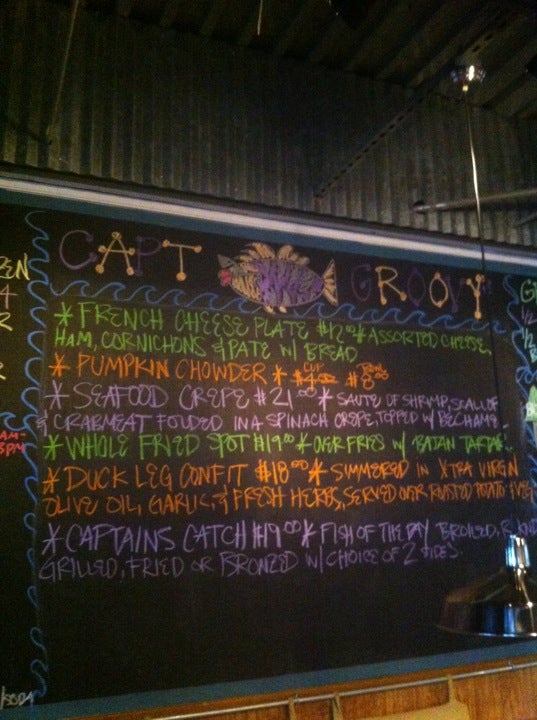 CAPT GROOVY
* FRENCH CHEESE PLATE $12.00 * ASSORTED CHEESE,
HAM, CORNICHONS & PATE W/ BREAD
* PUMPKIN CHOWDER * CUP $4.00 BOWL $8.00
* SEAFOOD CREPE $21.00 * SAUTE OF SHRIMP, SCALLOP
& CRABMEAT FOLDED IN A SPINACH CREPE, TOPPED W/ BECHAME
* WHOLE FRIED SPOT $19.00 * OVER FRIES W/ BAJAN TARTAR
* DUCK LEG CONFIT $18.00 * SIMMERED IN XTRA VIRGIN
OLIVE OIL, GARLIC, & FRESH HERBS, SERVED OVER ROASTED POTATO
* CAPTAINS CATCH $19.00 * FISH OF THE DAY BROILED,
GRILLED, FRIED OR BRONZED W/ CHOICE OF 2 SIDES.
/SODA